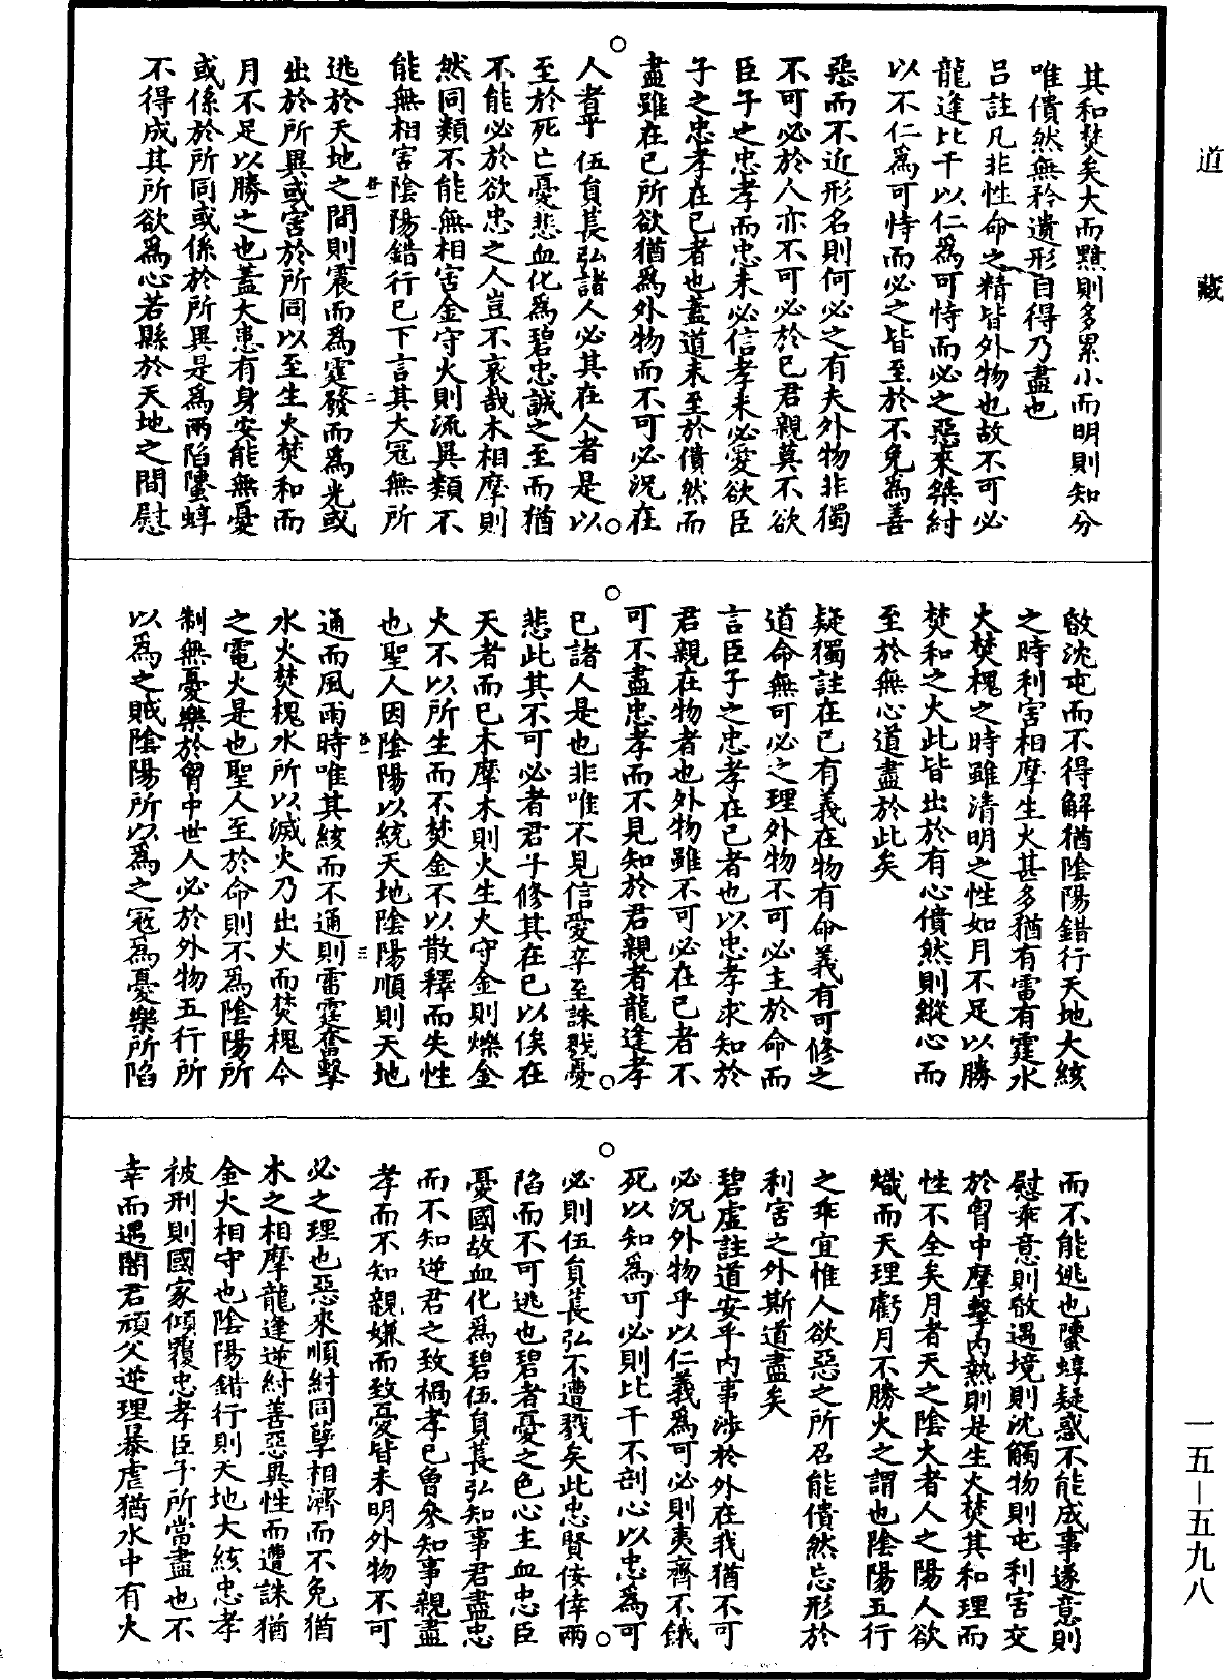 道藏
其和焚矣大而黯則多累小而明則知分
唯僓然無矜遺形自得乃盡也
呂註凡非性命之精皆外物也故不可必
龍逄比干以仁為可恃而必之惡來桀紂
以不仁為可恃而必之皆至於不免為善
惡而不近形名則何必之有夫外物非獨
不可必於人亦不可必於已君親莫不欲
臣子之忠孝而忠未必信孝未必愛欲臣
子之忠孝在已者也蓋道未至於僓然而
盡雖在已所欲猶為外物而不可必況在
人者乎伍員萇弘諸人必其在人者是以
至於死亡憂悲血化為碧忠誠之至而猶
不能必於欲忠之人豈不哀哉木相摩則
然同類不能無相害金守火則流異類不
能無相害陰陽錯行已下言其大寇無所
逃於天地之間則震而為霆發而為光或
出於所異或害於所同以至生火焚和而
月不足以勝之也蓋大患有身安能無憂
或係於所同或係於所異是為兩陷螴蜳
不得成其所欲為心若縣於天地之間慰
敃沈屯而不得解猶陰陽錯行天地大絯
之時利害相摩生火甚多猶有雷有霆水
火焚槐之時雖清明之性如月不足以勝
焚和之火此皆出於有心僓然則縱心而
至於無心道盡於此矣
疑獨註在已有義在物有命義有可修之
道命無可必之理外物不可必主於命而
言臣子之忠孝在已者也以忠孝求知於
君親在物者也外物雖不可必在已者不
可不盡忠孝而不見知於君親者龍逄孝
已諸人是也非唯不見信愛卒至誅戮憂
悲此其不可必者君子修其在已以俟在
天者而已木摩木則火生火守金則爍金
火不以所生而不焚金不以散釋而失性
也聖人因陰陽以統天地陰陽順則天地
通而風雨時唯其絯而不通則雷霆奮擊
水火焚槐水所以滅火乃出火而焚槐今
之電火是也聖人至於命則不為陰陽所
制無憂樂於胷中世人必於外物五行所
以為之賊陰陽所以為之寇為憂樂所陷
而不能逃也螴蜳疑惑不能成事遂意則
慰乖意則敃遇境則沈觸物則屯利害交
於胷中摩擊內熱則是生火焚其和理而
性不全矣月者天之陰火者人之陽人欲
熾而天理虧月不勝火之謂也陰陽五行
之乖宜惟人欲惡之所召能僓然忘形於
利害之外斯道盡矣
碧虛註道安乎內事涉於外在我猶不可
必況外物乎以仁義為可必則夷齊不餓
死以知為可必則比干不剖心以忠為可
必則伍員萇弘不遭戮矣此忠賢佞倖兩
陷而不可逃也碧者憂之色心主血忠臣
憂國故血化為碧伍員萇弘知事君盡忠
而不知逆君之致禍孝已曾參知事親盡
孝而不知親嫌而致憂皆未明外物不可
必之理也惡來順紂同孽相濟而不免猶
木之相摩龍逄逆紂善惡異性而遭誅猶
金火相守也陰陽錯行則天地大絯忠孝
被刑則國家傾覆忠孝臣子所當盡也不
幸而遇闇君頑父逆理暴虐猶水中有火
一五—五九八